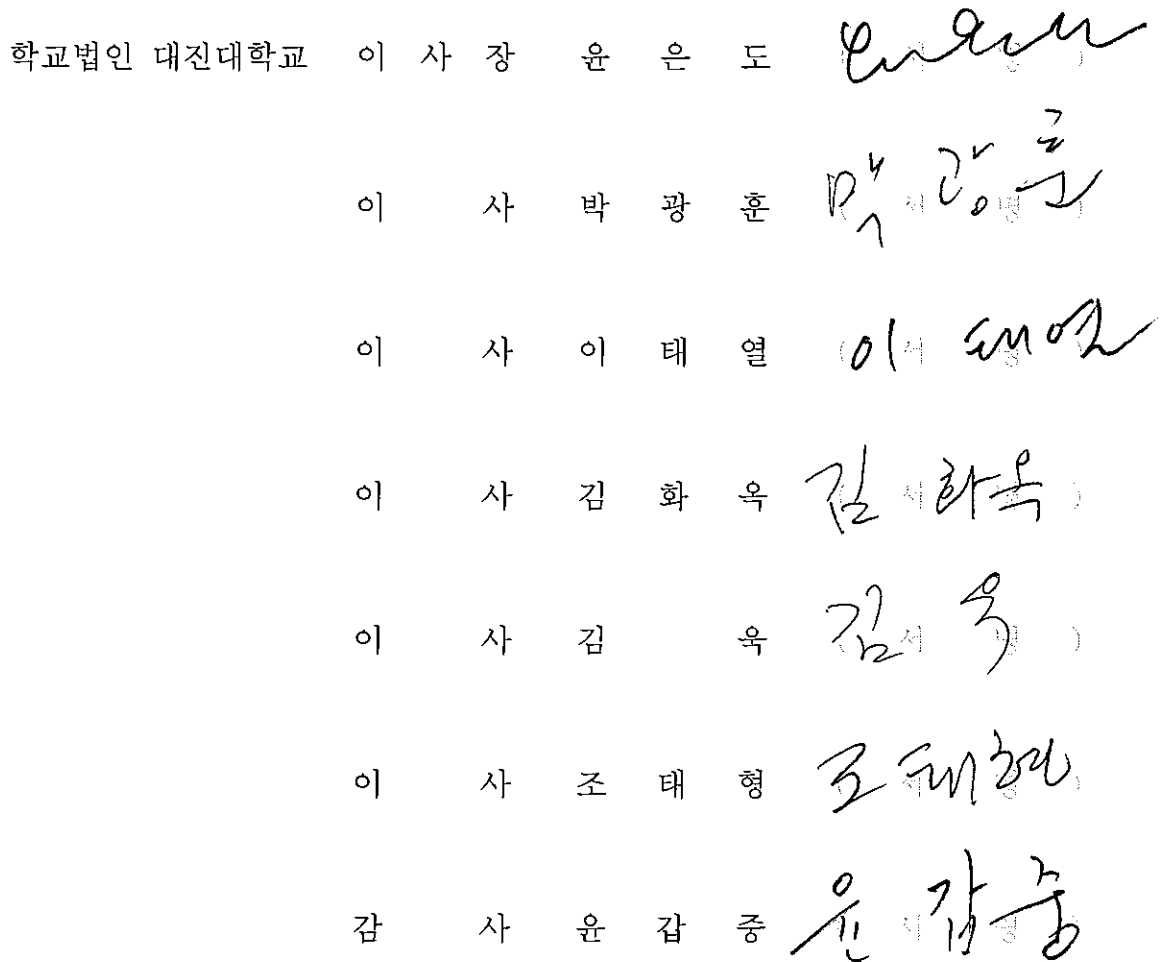 학교법인 대진대학교 이 사 장 윤 은 도 (서 명)
이 사 박 광 훈 (서 명) 박 광 훈
이 사 이 태 열 (서 명) 이 태 열
이 사 김 화 옥 (서 명) 김 화 옥
이 사 김 욱 (서 명) 김 욱
이 사 조 태 형 (서 명) 조 태 형
감 사 윤 갑 중 (서 명) 윤 갑 중